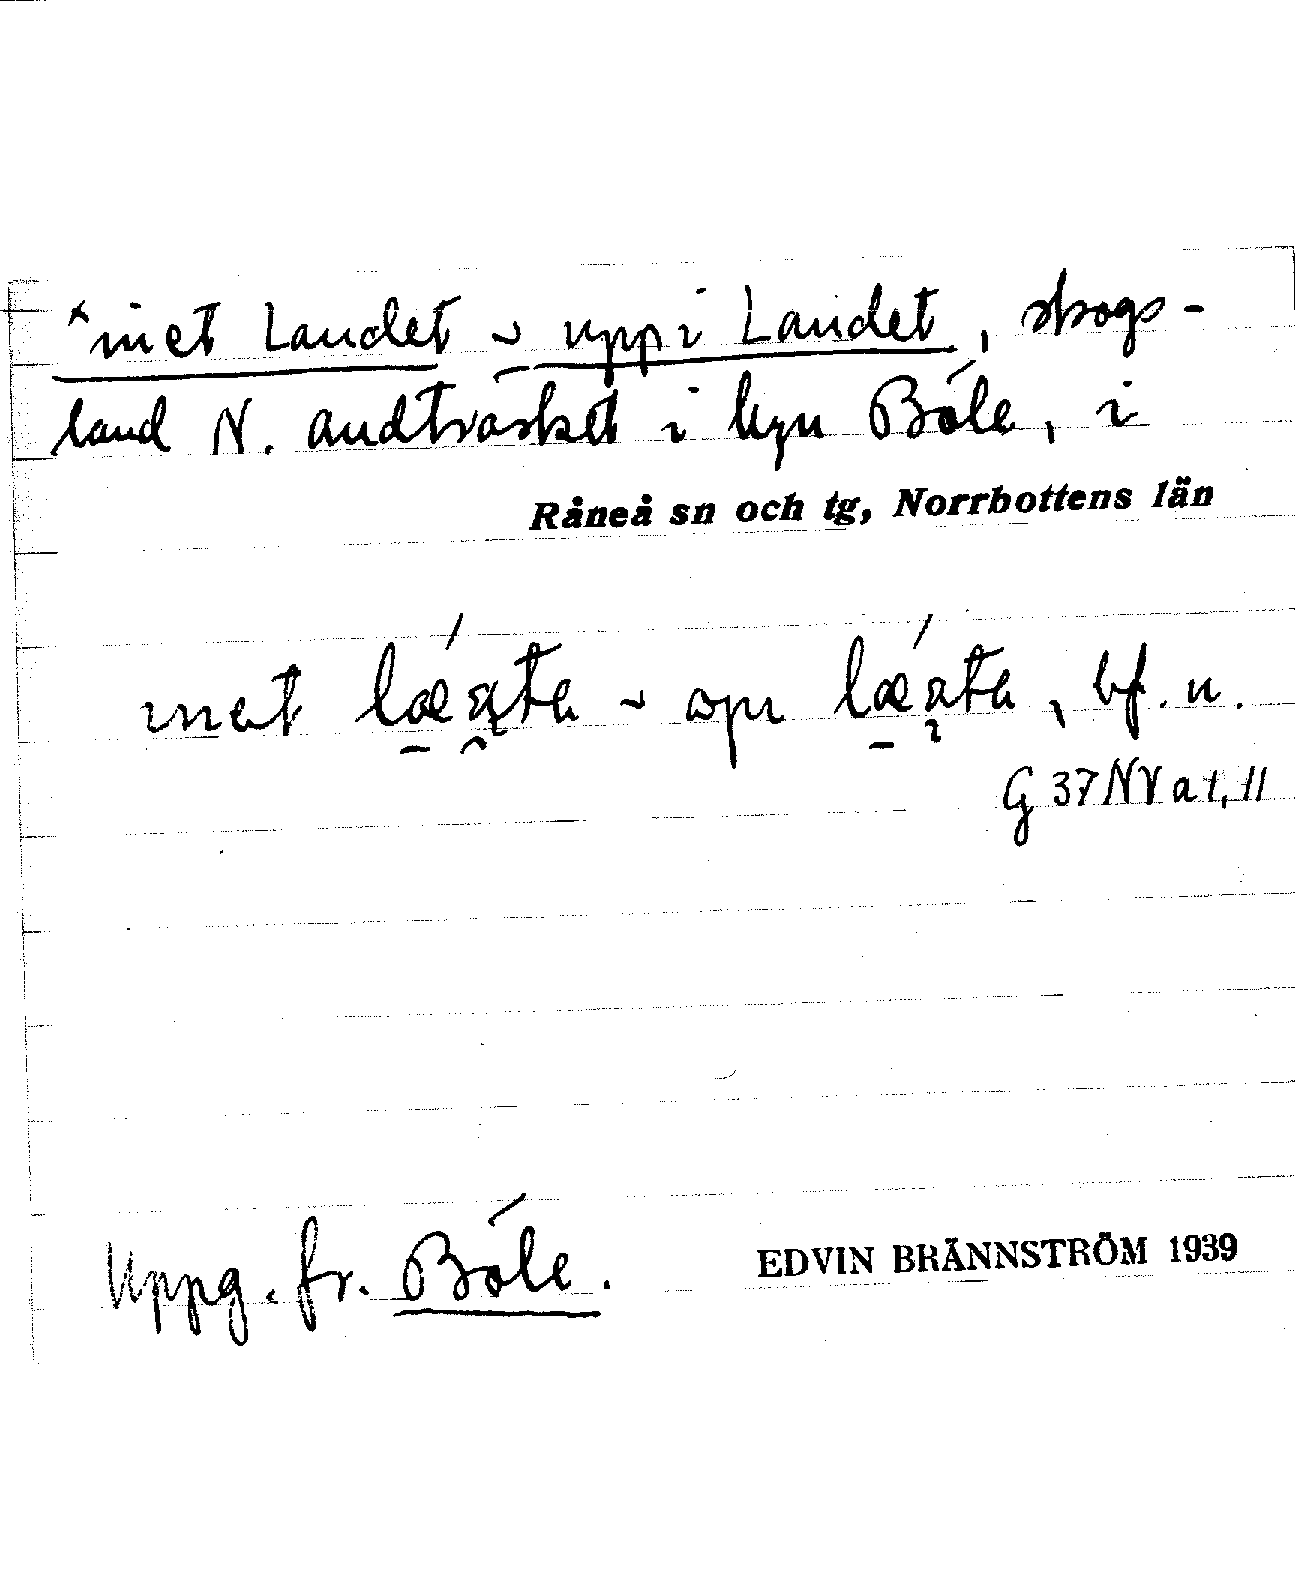 *inet Landet ~ uppi Landet, skogs-
land N. andträsket i byn Böle, i
Råneå sn och tg, Norrbottens län
bf. n.
G 37 NV a 1, 11
Uppg. fr. Böle.
EDVIN BRÄNNSTRÖM 1939